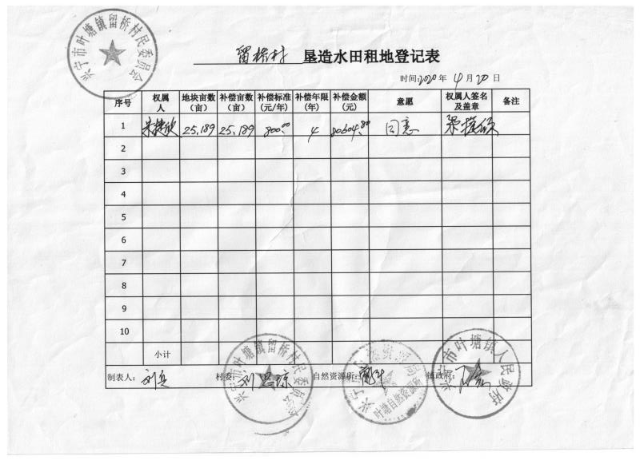 兴宁市叶塘镇留桥村民委员会
留桥村 垦造水田租地登记表
时间:2020年4月20日
序号 权属人 地块亩数(亩) 补偿亩数(亩) 补偿标准(元/年) 补偿年限(年) 补偿金额(元) 意愿 权属人签名及盖章 备注
1 25.189 25.189 800.00 4 80604.80 同意
2
3
4
5
6
7
8
9
10
小计
制表人: 村委: 自然资源所: 镇政府:
兴宁市叶塘镇留桥村民委员会
叶塘自然资源所
兴宁市叶塘镇人民政府